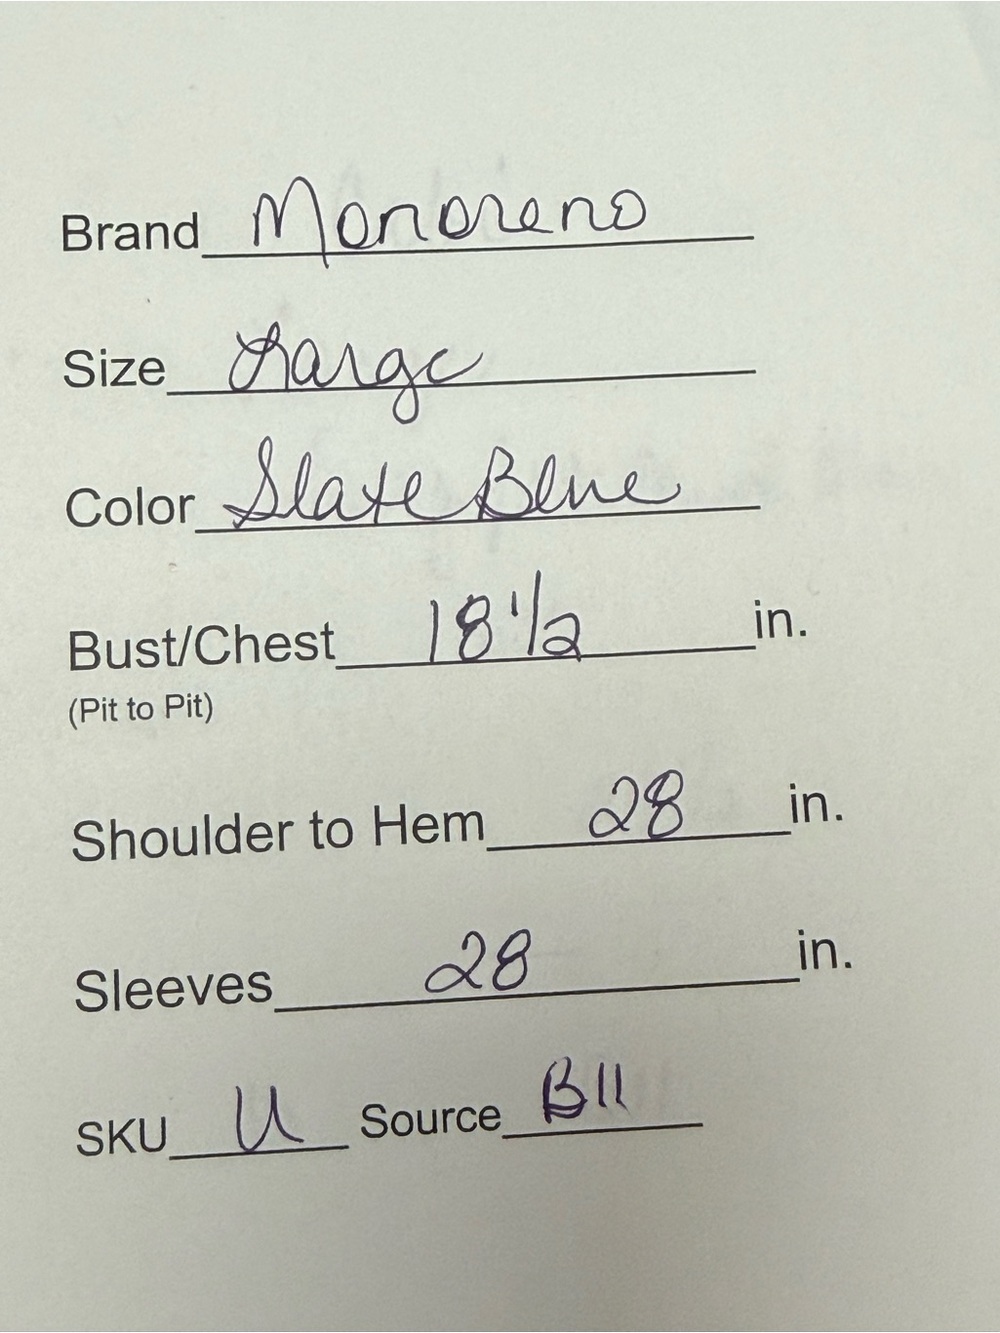 Brand Monoreno
Size Large
Color Slate Blue
Bust/Chest 18 1/2 in.
(Pit to Pit)
Shoulder to Hem 28 in.
Sleeves 28 in.
SKU U Source B11